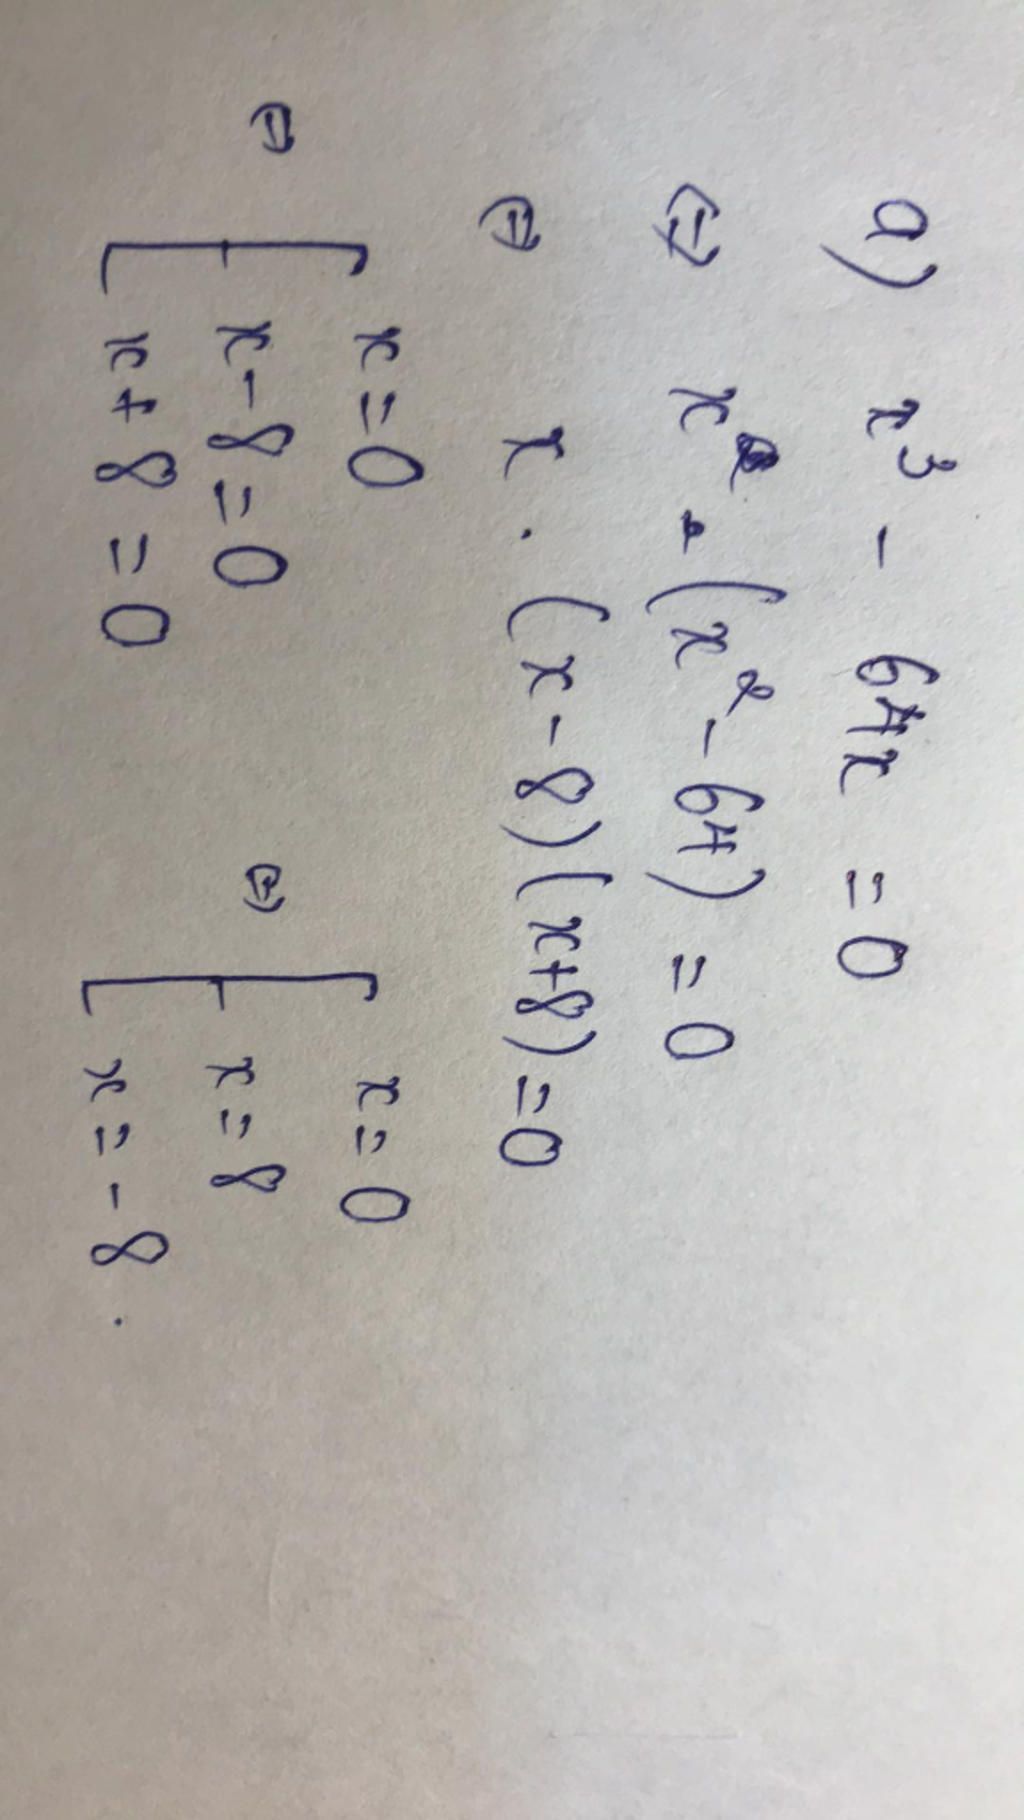 a) x³ - 64x = 0
⇔ x . (x² - 64) = 0
⇔ x . (x - 8)(x + 8) = 0
⇔ [ x = 0 ⇔ [ x = 0
x - 8 = 0 x = 8
x + 8 = 0 x = - 8 .